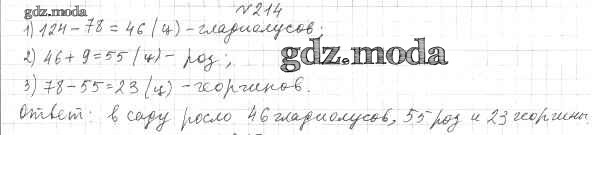 gdz.moda
№214
1) 124 - 78 = 46 (ч) - гладиолусов;
2) 46 + 9 = 55 (ч) - роз;
gdz.moda
3) 78 - 55 = 23 (ч) - георгинов.
Ответ: в саду росло 46 гладиолусов, 55 роз и 23 георгины.